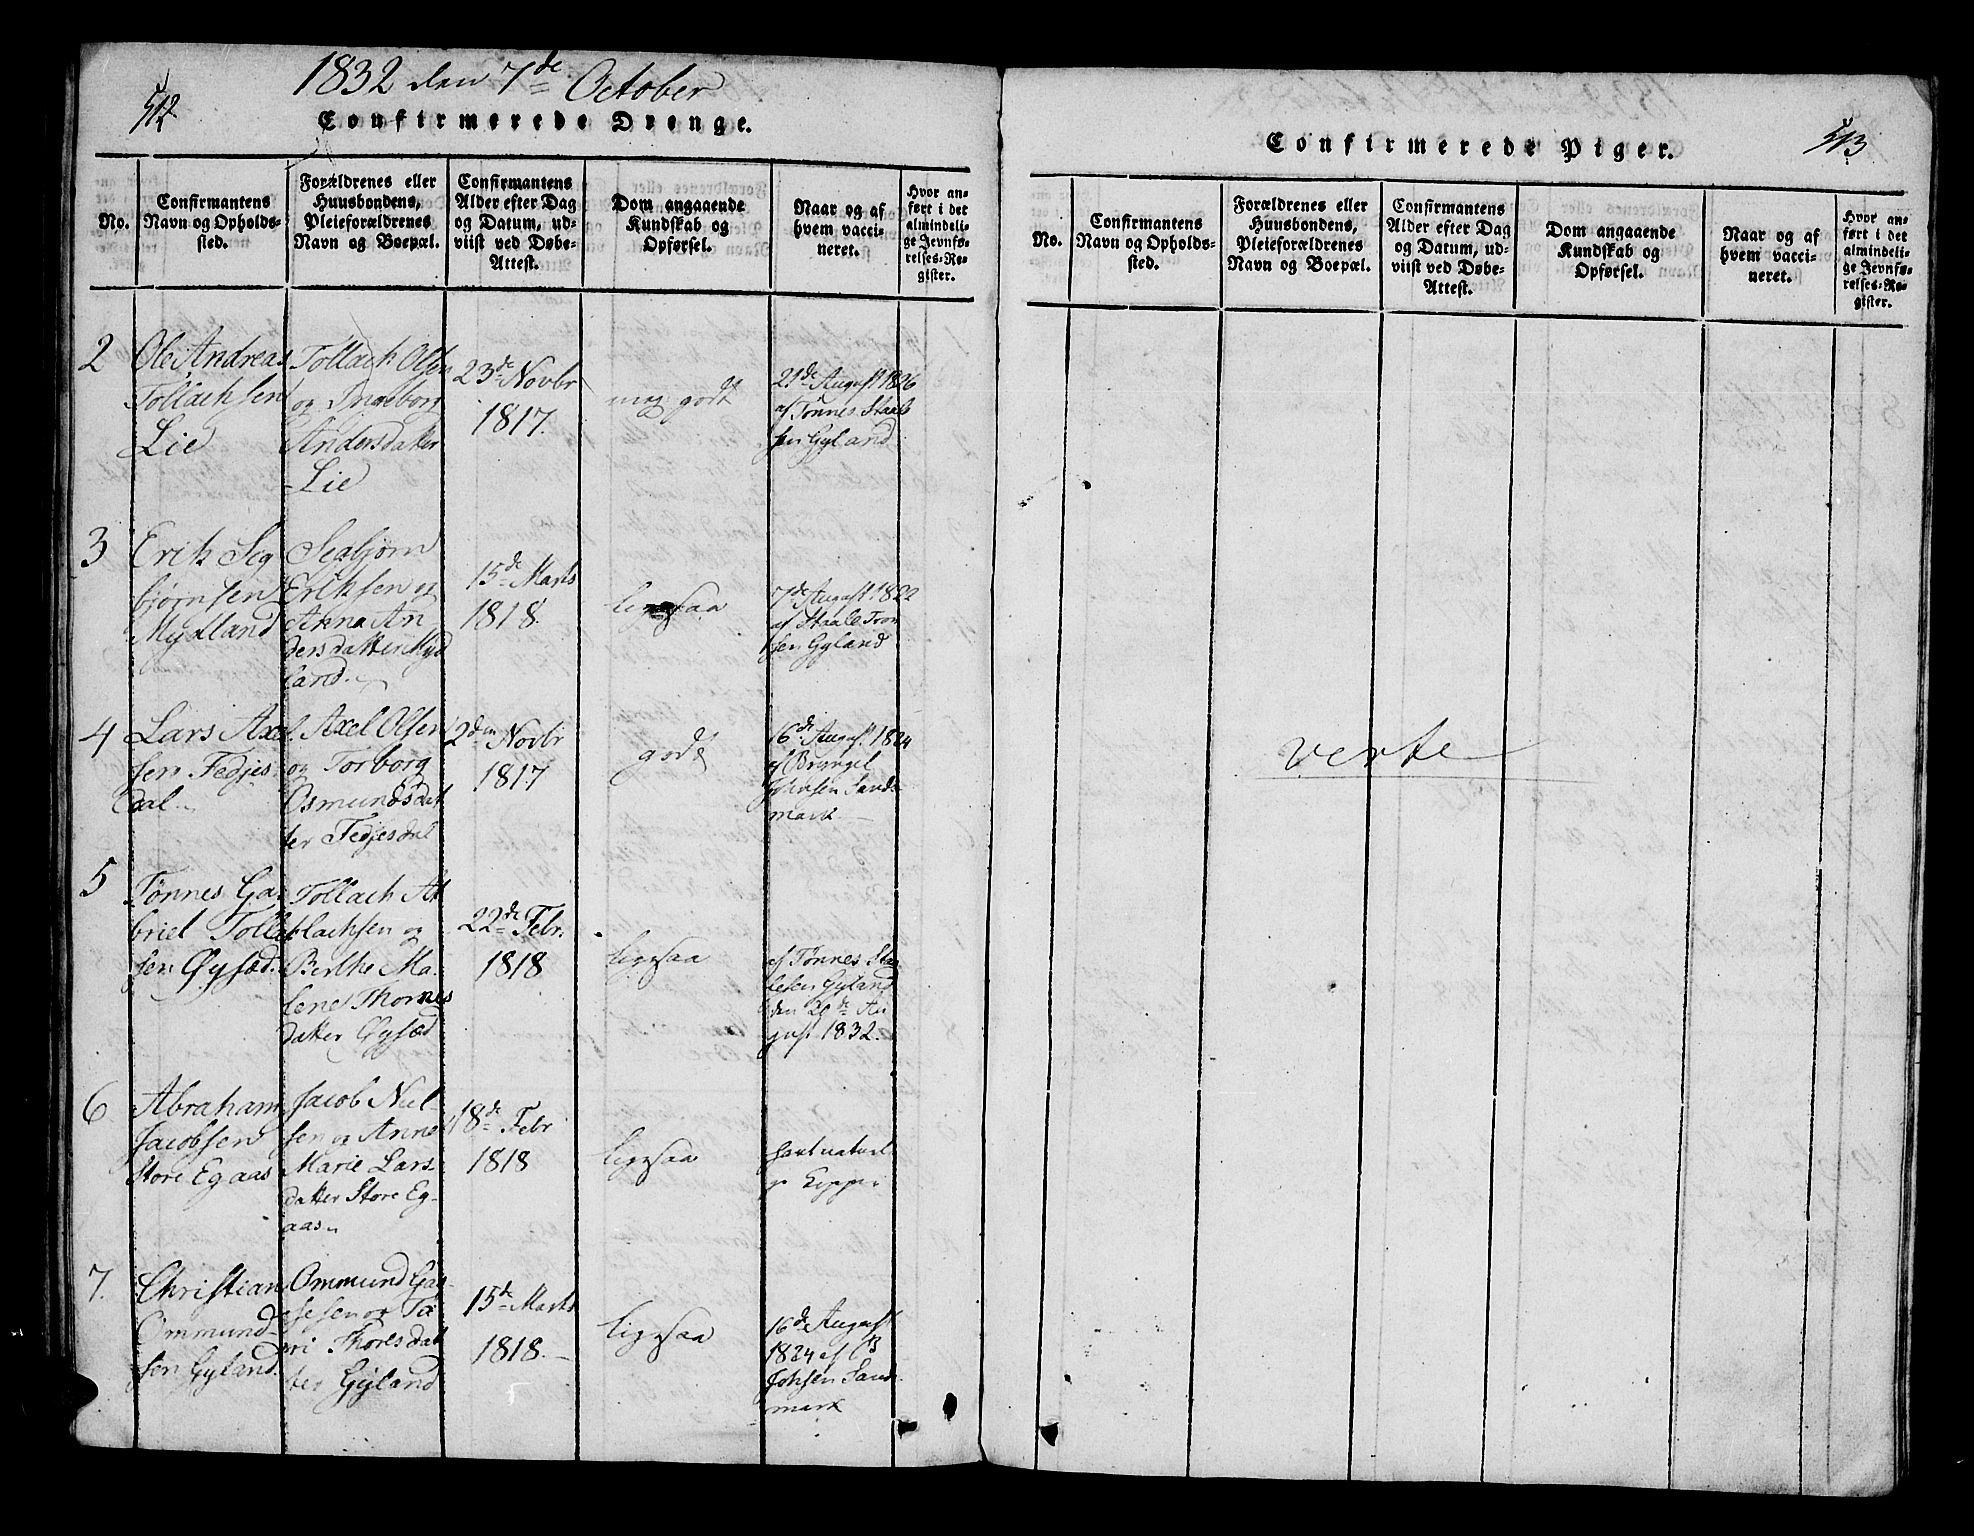 512
1832 den 7de October
Confirmerede Drenge.
No.
Confirmantens
Navn og Opholds-
sted.
Forældrenes eller
Huusbondens,
Pleieforældrenes
Navn og Boepæl.
Confirmantens
Alder efter Dag
og Datum, ud-
viist ved Døbe-
Attest.
Dom angaaende
Kundskab og
Opførsel.
Naar og af
hvem vacci-
neret.
Hvor an-
ført i det
almindeli-
ge Jevnfø-
relses-Re-
gister.
2
Ole Andreas
Tollachsen
Lie
Tollach Olsen
og Ingeborg
Andersdatter
Lie
23de Novbr
1817.
meg godt
21de August 1826
af Tønnes Staale
sen Gyland
3
Erik Seg
bjørnsen
Mydland
Segbjørn
Eriksen og
Anna An
dersdatter Myd
land.
15de Marts
1818.
ligesaa
7de August 1822
af Staale Tron
sen Gyland
4
Lars Axel
sen Fedjes
dal
Axel Olsen
og Torborg
Osmundsdat
ter Fedjesdal
2den Novbr
1817
godt
16de August 1824
af
Johnsen Sand
mark
5
Tønnes Ga
briel Tollak
sen Gysæd.
Tollach At
lachsen og
Berthe Ma-
lene Thornes
datter Gysæd
22de Febr.
1818
ligesaa
af Tønnes Staa
lesen Gyland
den 20de Au
gust 1832.
6
Abraham
Jacobsen
Store Egaas
Jacob Niel
sen og Anne
Marie Lars
datter Store Eg-
aas
18de Febr
1818
ligesaa
havt naturl
ge Kopper
7.
Christian
Ommund-
sen Gyland.
Ommund Ga-
sesen og Ta
ri Thoresdat
ter Gyland
15de Marts
1818.
ligesaa
16de August
1824 af B
Johsen Sand
mark
513
Confirmerede Piger.
No.
Confirmantens
Navn og Opholds-
sted.
Forældrenes eller
Huusbondens,
Pleieforældrenes
Navn og Boepæl.
Confirmantens
Alder efter Dag
og Datum, ud-
viist ved Døbe-
Attest.
Dom angaaende
Kundskab og
Opførsel.
Naar og af
hvem vacci-
neret.
Hvor an-
ført i det
almindeli-
ge Jevnfø-
relses-Re-
gister.
verte